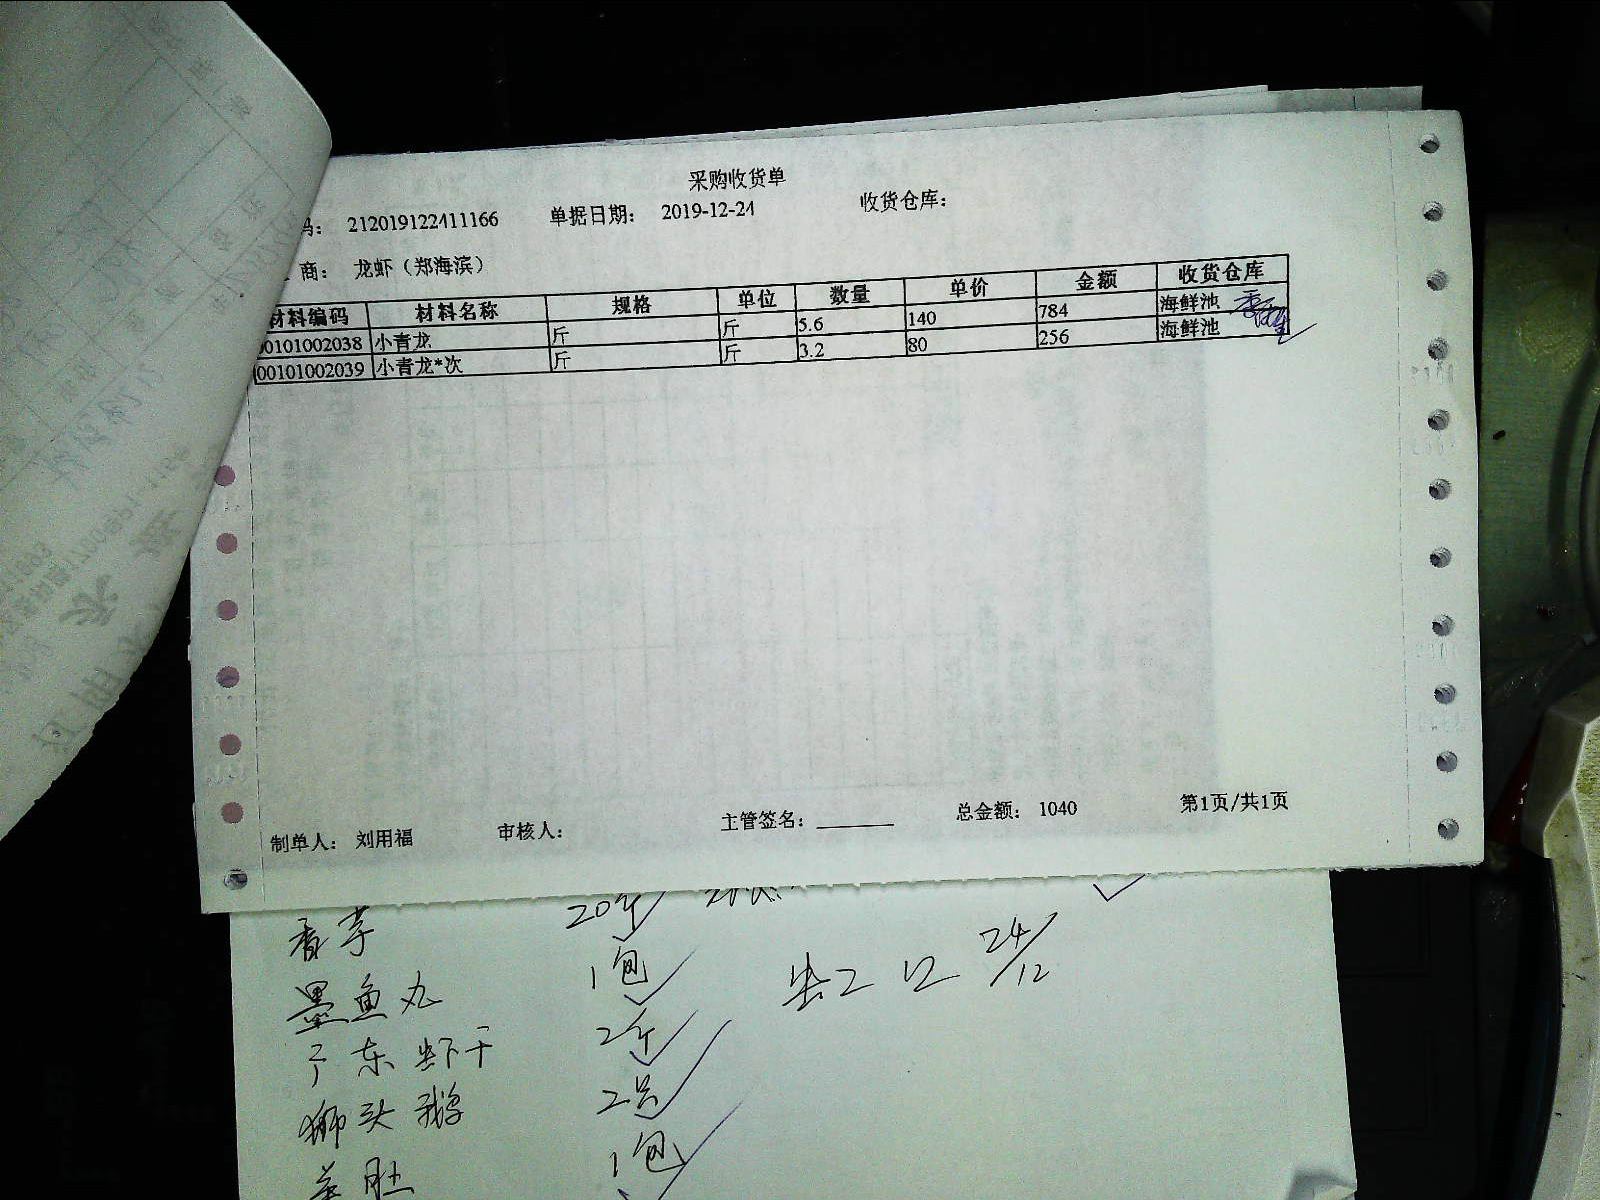 采购收货单
码： 212019122411166 单据日期： 2019-12-24 收货仓库：
商： 龙虾（郑海滨）
材料编码 材料名称 规格 单位 数量 单价 金额 收货仓库
00101002038 小青龙 斤 斤 5.6 140 784 海鲜池
00101002039 小青龙*次 斤 斤 3.2 80 256 海鲜池
制单人： 刘用福 审核人： 主管签名： 总金额： 1040 第1页/共1页
香芋 20斤
墨鱼丸 1包 24/12
广东虾干 2斤
狮头鹅 2只
1包